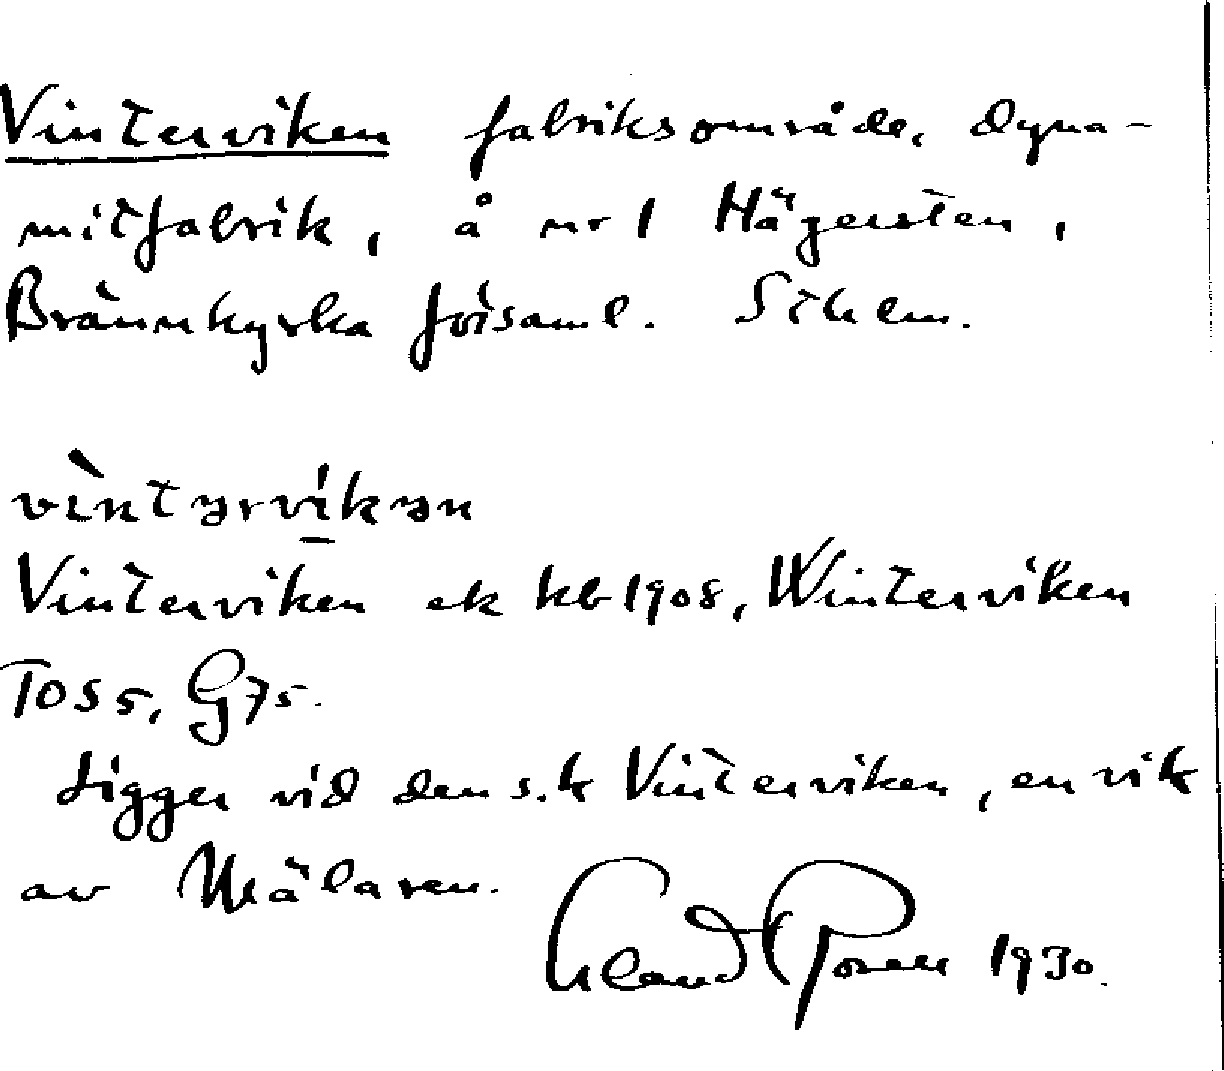 Vinterviken fabriksområde, dyna-
mitfabrik, å nr 1 Hägersten,
Brännkyrka församl. Sthlm.
vìntərvikən
Vinterviken ek kb 1908, Winterviken
TOS 5, G 75.
Ligger vid den s.k Vinterviken, en vik
av Mälaren.
1930.